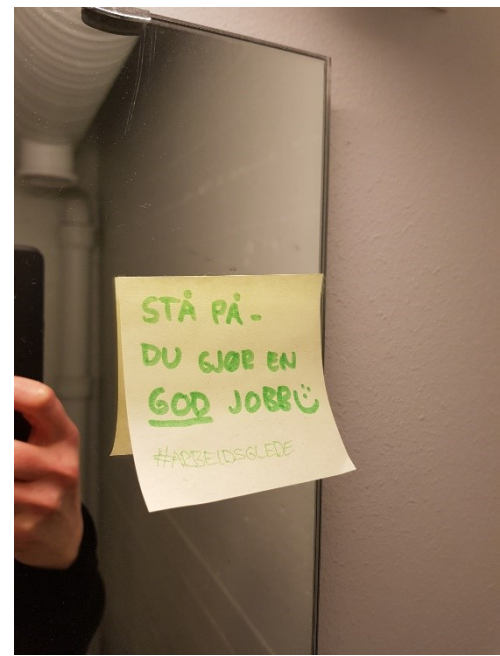 STÅ PÅ -
DU GJØR EN
GOD JOBB
#ARBEIDSGLEDE